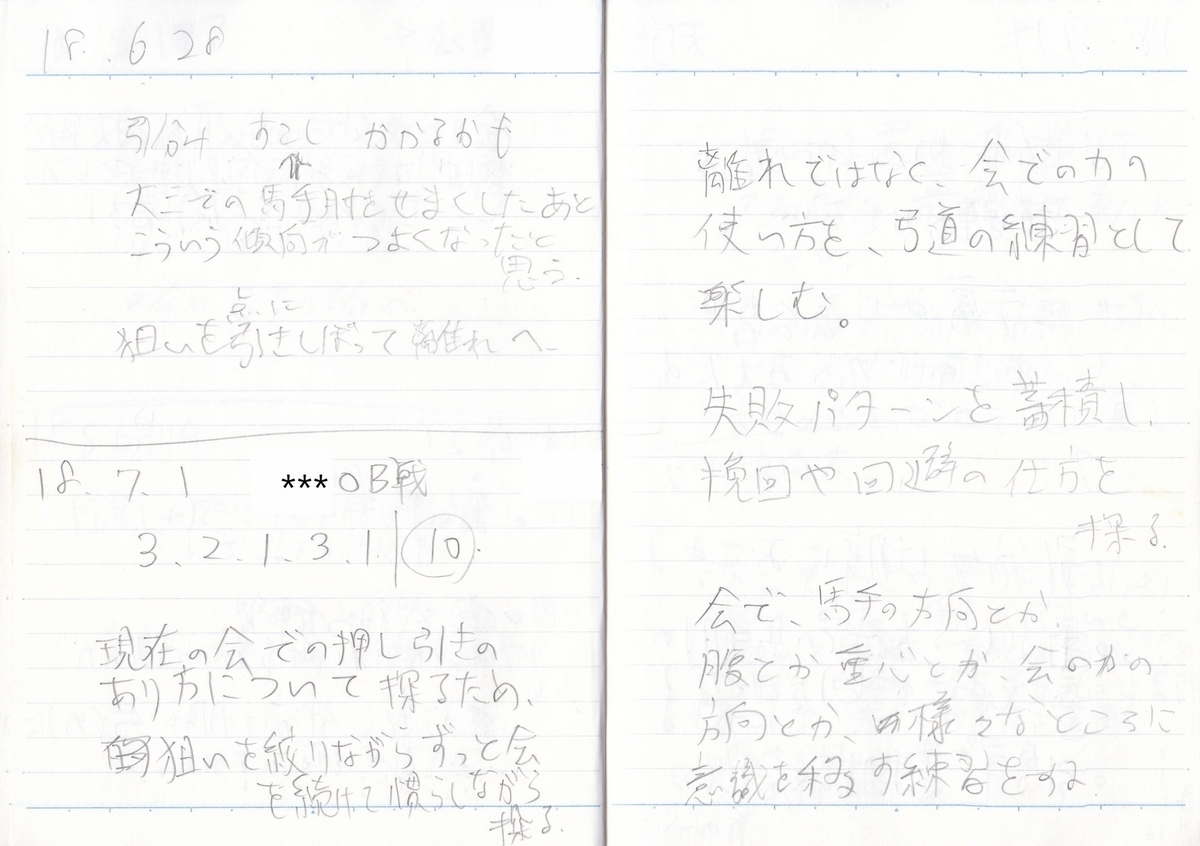 18. 6 28
引分け すこし かかるかも
↑
大三での馬手肘をせまくしたあと
こういう傾向がつよくなったと
思う.
点に
狙いを引きしぼって離れへ
18. 7. 1 ***OB戦
3. 2. 1. 3. 1 | 10.
現在の会での押し引きの
あり方について探るため、
狙いを絞りながらずっと会
を続けて慣らしながら
探る.
離れではなく、会での力の
使い方を、弓道の練習として
楽しむ。
失敗パターンを蓄積し、
挽回や回避の仕方を
探る.
会で、馬手の方向とか、
腹とか重心とか、会の力の
方向とか、様々なところに
意識を移す練習をする